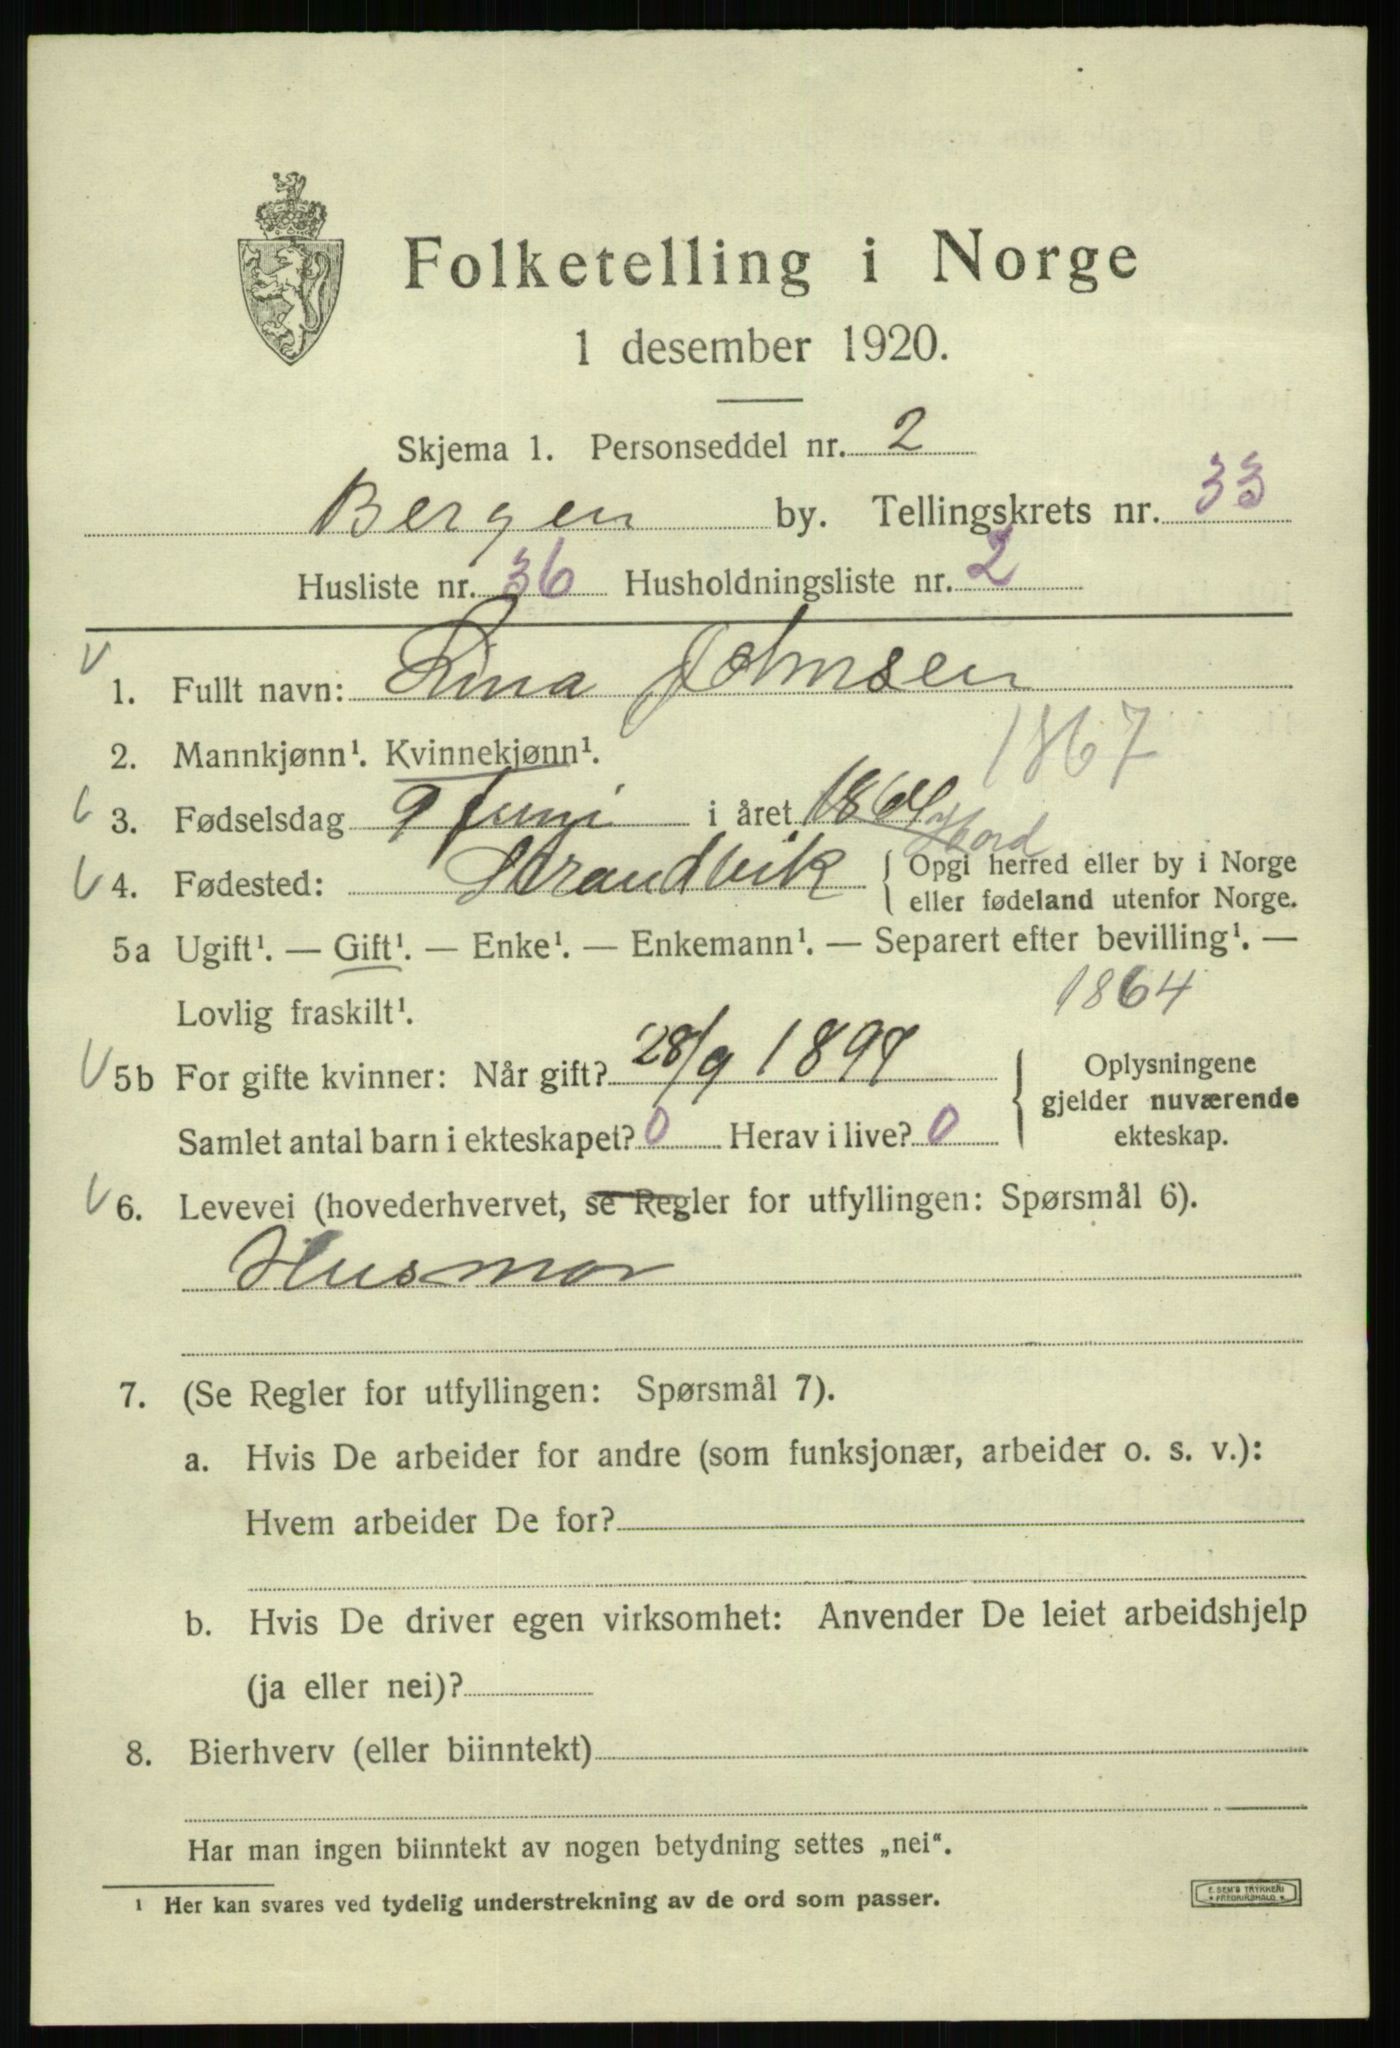 Folketelling i Norge
1 desember 1920.
Skjema 1. Personseddel nr. 2
Bergen by. Tellingskrets nr. 33
Husliste nr. 36 Husholdningsliste nr. 2
1. Fullt navn: Lina Johnsen
1867
2. Mannkjønn¹. Kvinnekjønn¹.
3. Fødselsdag 9 Juni i året 1864
4. Fødested: Strandvik { Opgi herred eller by i Norge
eller fødeland utenfor Norge.
5a Ugift¹. — Gift¹. — Enke¹. — Enkemann¹. — Separert efter bevilling¹. —
Lovlig fraskilt¹. 1864
5b For gifte kvinner: Når gift? 28/9 1897 { Oplysningene
gjelder nuværende
ekteskap.
Samlet antal barn i ekteskapet? 0 Herav i live? 0
6. Levevei (hovederhvervet, se Regler for utfyllingen: Spørsmål 6).
Husmor
7. (Se Regler for utfyllingen: Spørsmål 7).
a. Hvis De arbeider for andre (som funksjonær, arbeider o. s. v.):
Hvem arbeider De for?
b. Hvis De driver egen virksomhet: Anvender De leiet arbeidshjelp
(ja eller nei)?
8. Bierhverv (eller biinntekt)
Har man ingen biinntekt av nogen betydning settes „nei“.
¹ Her kan svares ved tydelig understrekning av de ord som passer.
E. SEM'S TRYKKERI
FREDRIKSHALD